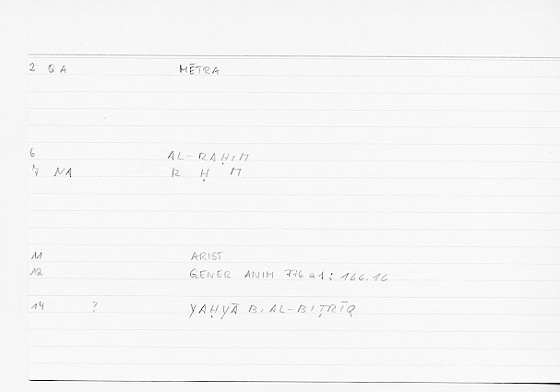 2 QA MĒTRA
6 AL-RAḤIM
7 NA R Ḥ M
11 ARIST
12 GENER ANIM 776a1: 166.16
14 ? YAḤYĀ B. AL-BIṬRĪQ